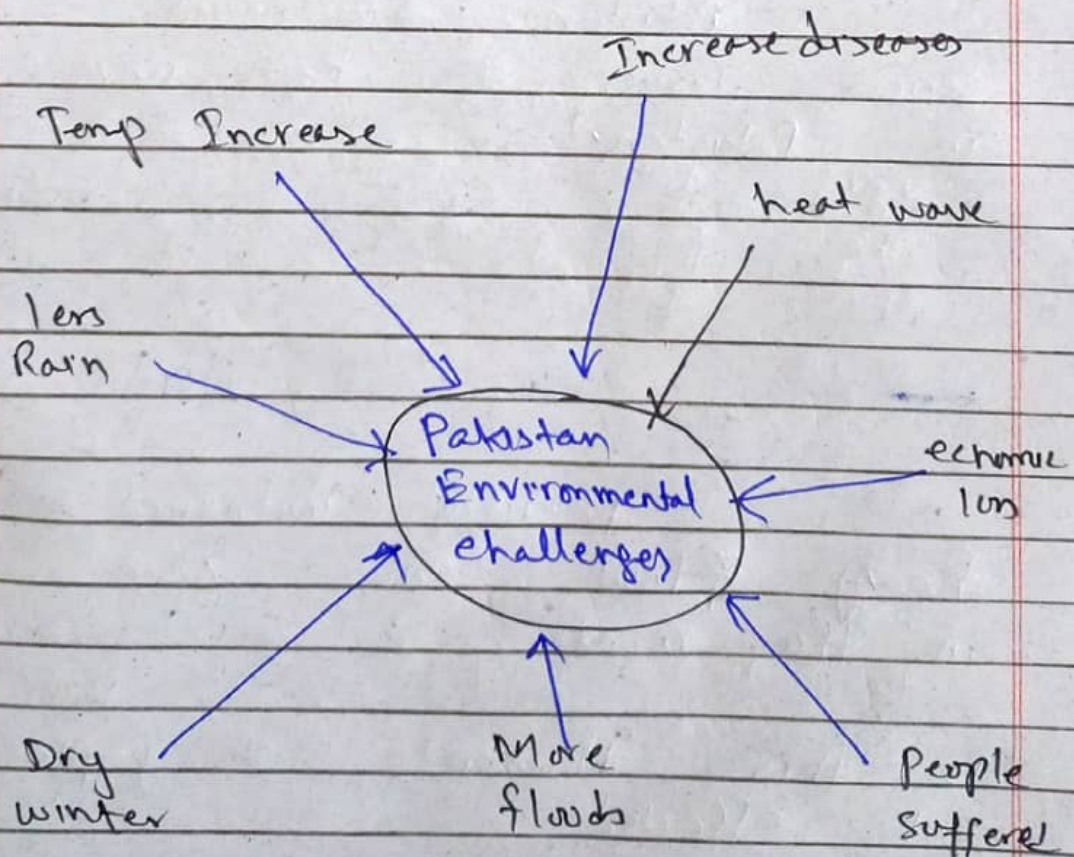 Increase diseases
Temp Increase
heat wave
less
Rain
Pakistan
Environmental
challenges
echomic
loss
Dry
winter
More
floods
People
Sufferel